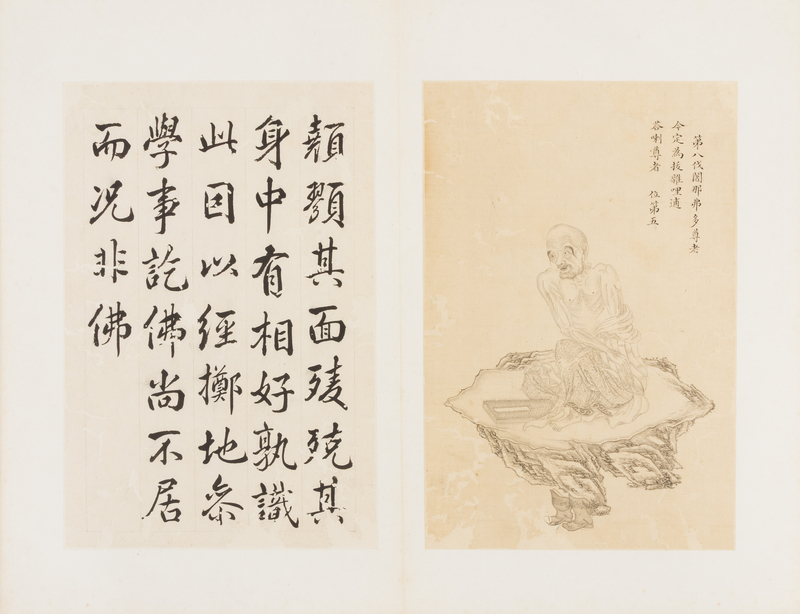 第八伐闍那弗多尊者
今定為拔雜哩逋
答喇尊者 位第五
顤顟其面㱥殑其
身中有相好孰識
此因以經擲地參
學事訖佛尚不居
而況非佛